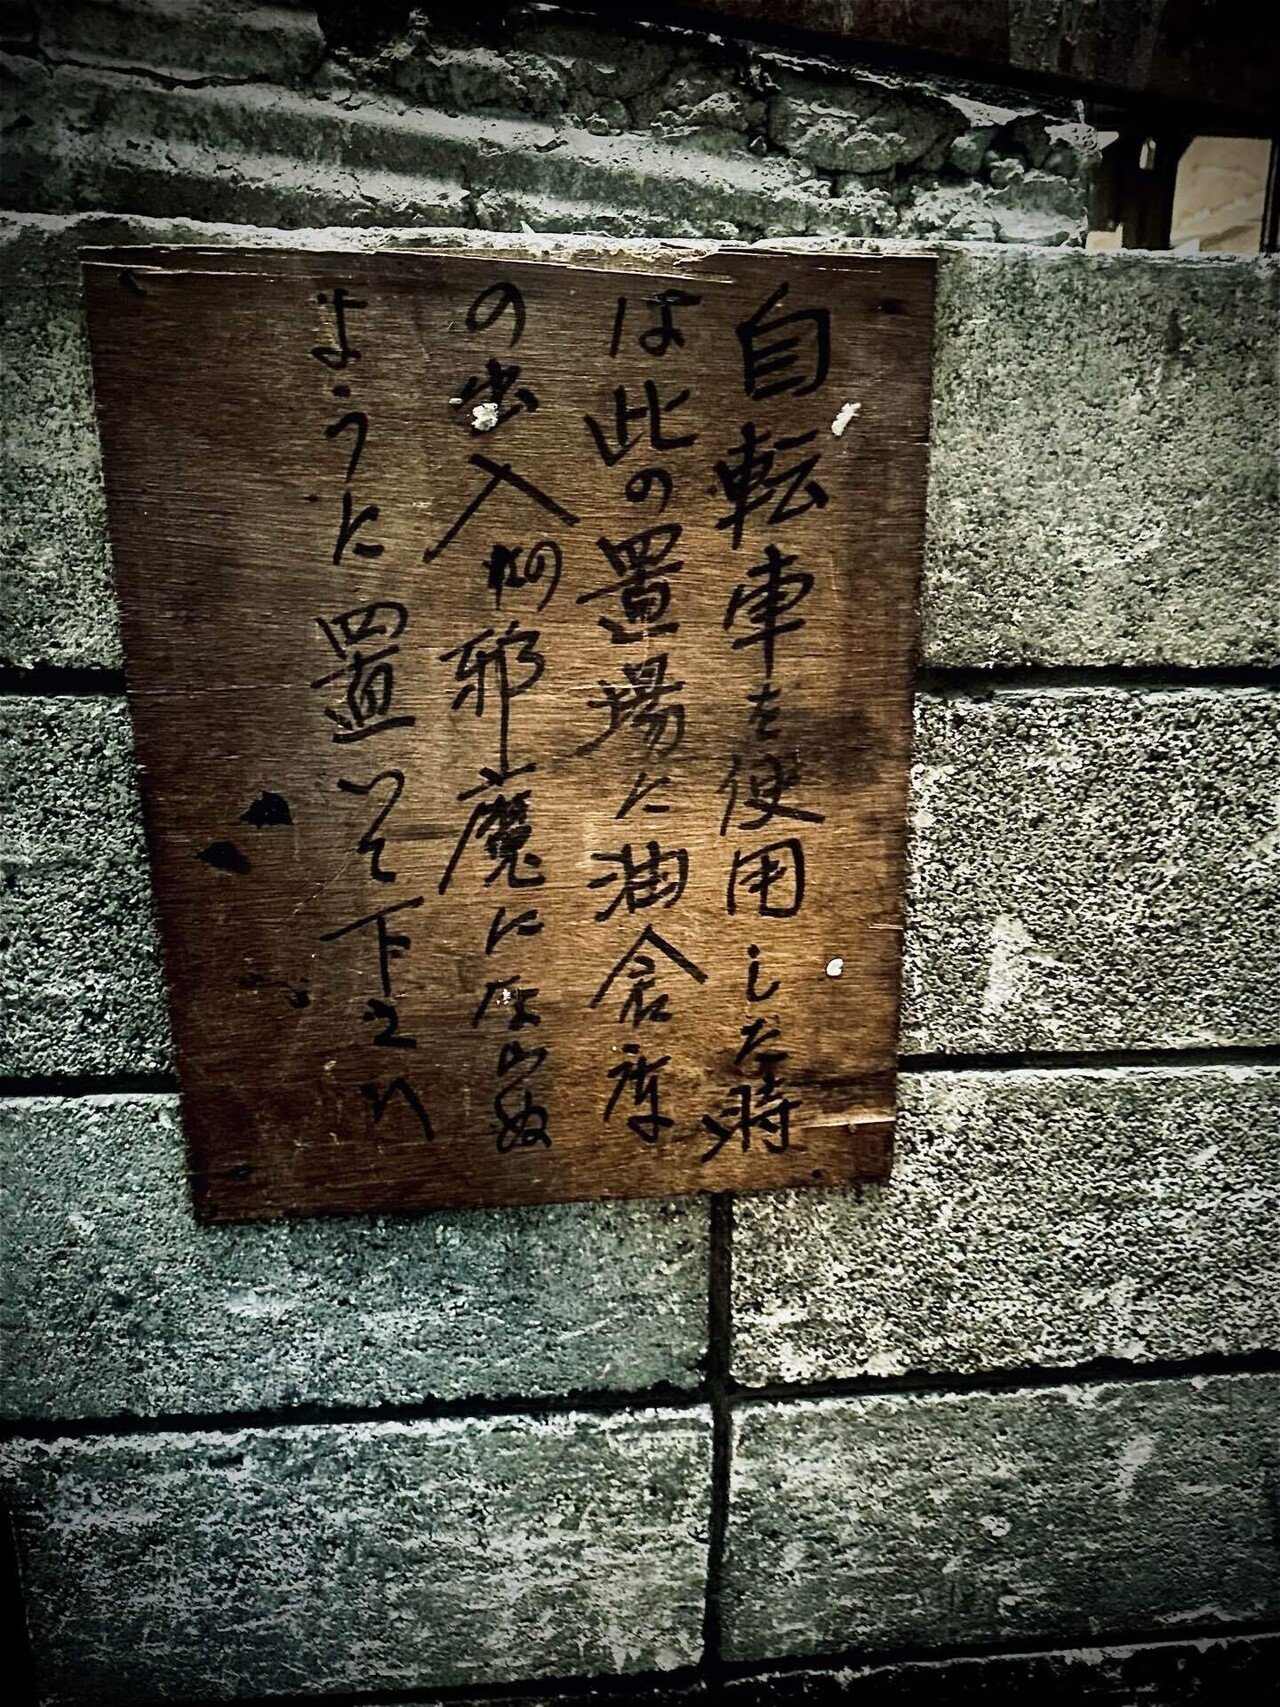 自転車を使用した時
は此の置場に油倉庫
の出入口の邪魔にならぬ
ように置いて下さい